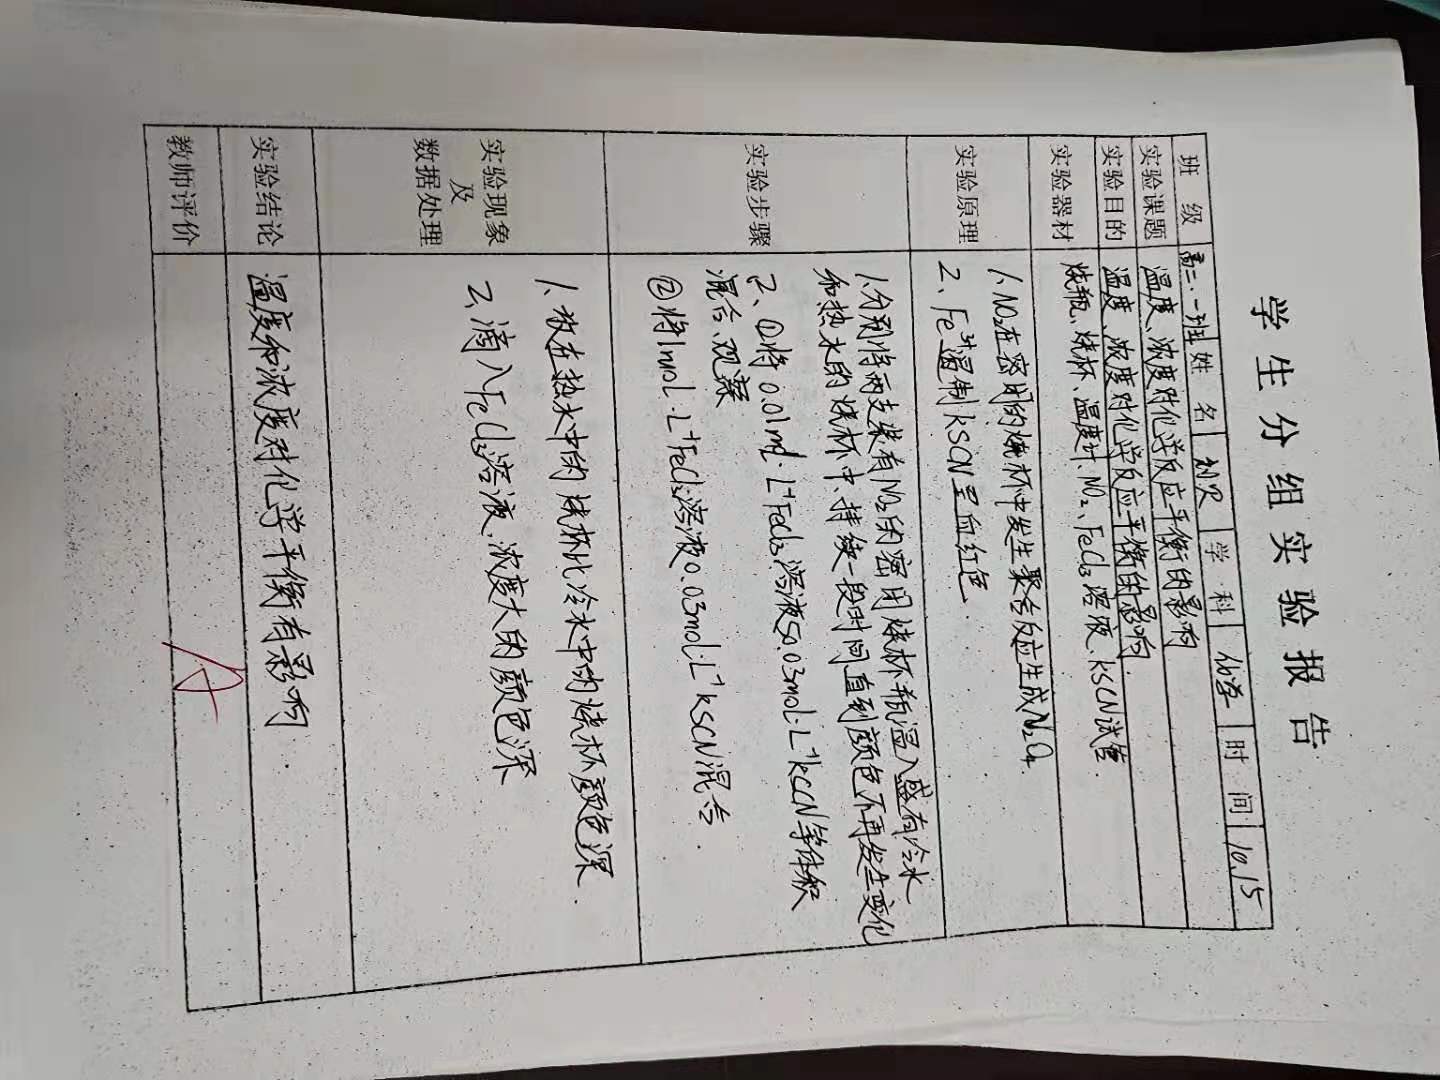 学生分组实验报告
班 级 高二、一班 姓 名 学 科 化学 时 间 10.15
实验课题 温度、浓度对化学反应平衡的影响
实验目的 温度、浓度对化学反应平衡的影响
实验器材 烧瓶、烧杯、温度计、NO₂、FeCl₃溶液、KSCN试管.
实验原理 1、NO₂在密闭的烧杯中发生聚合反应生成N₂O₄
2、Fe³⁺遇制KSCN呈血红色
实验步骤 1.分别将两支装有NO₂的密闭烧杯 温入盛有冷水
和热水的烧杯中、持续一段时间直到颜色不再发生变化
2、①将0.01ml·L⁻¹FeCl₃溶液50.03mol·L⁻¹KCCN等体积
混合、观察
②将1mol·L⁻¹FeCl₃溶液0.03mol·L⁻¹KSCN混合.
实验现象及数据处理 1、放在热水中的烧杯比冷水中的烧杯颜色深.
2、滴入FeCl₃溶液、浓度大的颜色深
实验结论 温度和浓度对化学平衡有影响
教师评价 A